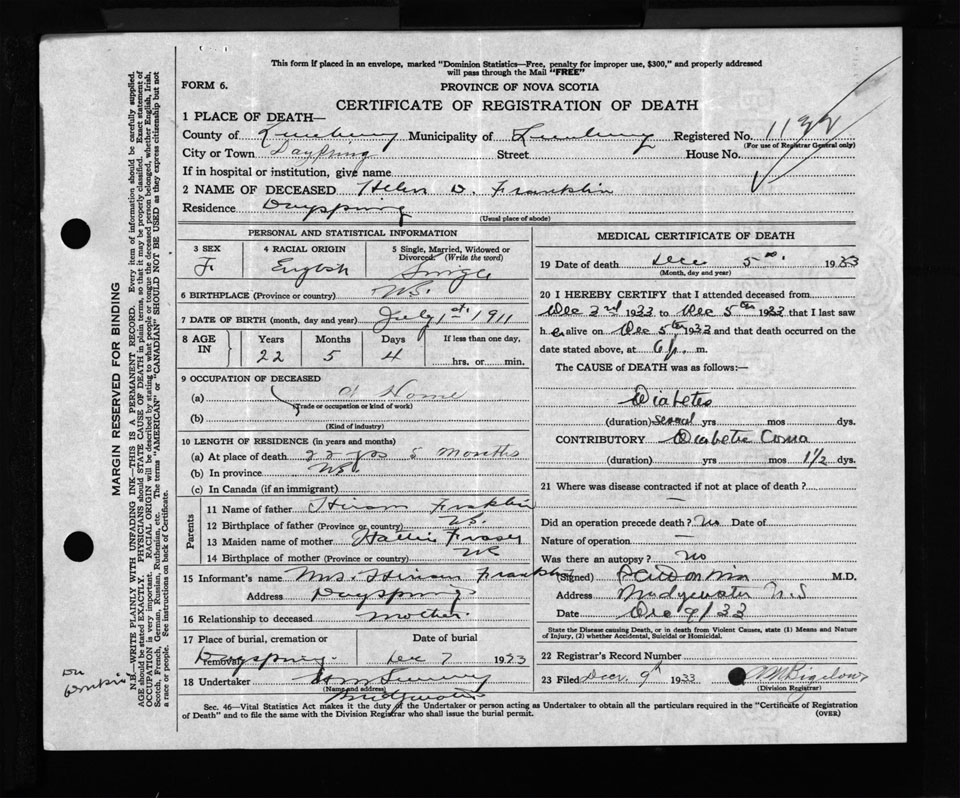 This form if placed in an envelope, marked "Dominion Statistics—Free, penalty for improper use, $300," and properly addressed
will pass through the Mail "FREE"
FORM 6.
PROVINCE OF NOVA SCOTIA
CERTIFICATE OF REGISTRATION OF DEATH
1 PLACE OF DEATH—
County of Lunenburg Municipality of Lunenburg Registered No.
(For use of Registrar General only)
City or Town Dayspring Street House No.
If in hospital or institution, give name
2 NAME OF DECEASED Helen D. Franklin
Residence Dayspring
(Usual place of abode)
PERSONAL AND STATISTICAL INFORMATION
3 SEX 4 RACIAL ORIGIN 5 Single, Married, Widowed or
Divorced. (Write the word)
F. English Single
6 BIRTHPLACE (Province or country) N.S.
7 DATE OF BIRTH (month, day and year) July 1st. 1911
8 AGE IN Years Months Days If less than one day,
22 5 4 hrs. or min.
9 OCCUPATION OF DECEASED
(a) at Home
(Trade or occupation or kind of work)
(b)
(Kind of industry)
10 LENGTH OF RESIDENCE (in years and months)
(a) At place of death 22 yrs 5 months
(b) In province N.S.
(c) In Canada (if an immigrant)
Parents
11 Name of father Hiram Franklin
12 Birthplace of father (Province or country) N.S.
13 Maiden name of mother Hallie Fraser
14 Birthplace of mother (Province or country) NS
15 Informant's name Mrs. Hiram Franklin
Address Dayspring
16 Relationship to deceased mother
17 Place of burial, cremation or removal Date of burial
Dayspring. Dec 7 1933
18 Undertaker
(Name and address)
Bridgewater
MEDICAL CERTIFICATE OF DEATH
19 Date of death Dec 5th. 1933
(Month, day and year)
20 I HEREBY CERTIFY that I attended deceased from
Dec 2nd 1933 to Dec 5th 1933 that I last saw
h er alive on Dec 5th 1933 and that death occurred on
date stated above, at 6 p. m.
The CAUSE of DEATH was as follows:—
Diabetes
(duration) several yrs mos dys.
CONTRIBUTORY Diabetic Coma
(duration) yrs mos 1½ dys.
21 Where was disease contracted if not at place of death?
—
Did an operation precede death? No Date of
Nature of operation —
Was there an autopsy? No
(Signed) M.D.
Address Bridgewater N.S
Date Dec 9/33
State the Disease causing Death, or in death from Violent Causes, state (1) Means and Nature
of Injury, (2) whether Accidental, Suicidal or Homicidal.
22 Registrar's Record Number
23 Filed Decr. 9th 1933 Bigelow
(Division Registrar)
Sec. 46—Vital Statistics Act makes it the duty of the Undertaker or person acting as Undertaker to obtain all the particulars required in the "Certificate of Registration
of Death" and to file the same with the Division Registrar who shall issue the burial permit.
(OVER)
MARGIN RESERVED FOR BINDING
N.B.—WRITE PLAINLY WITH UNFADING INK—THIS IS A PERMANENT RECORD. Every item of information should be carefully supplied.
AGE should be stated EXACTLY. PHYSICIANS should STATE CAUSE OF DEATH in plain terms, so that it may be properly classified. Exact statement of
OCCUPATION is very important. RACIAL ORIGIN will be described by stating to what people or tongue the deceased person belonged, whether English, Irish,
Scotch, French, German, Russian, Ruthenian, etc. The terms "AMERICAN" or "CANADIAN" SHOULD NOT BE USED as they express citizenship but not
a race or people. See instructions on back of Certificate.